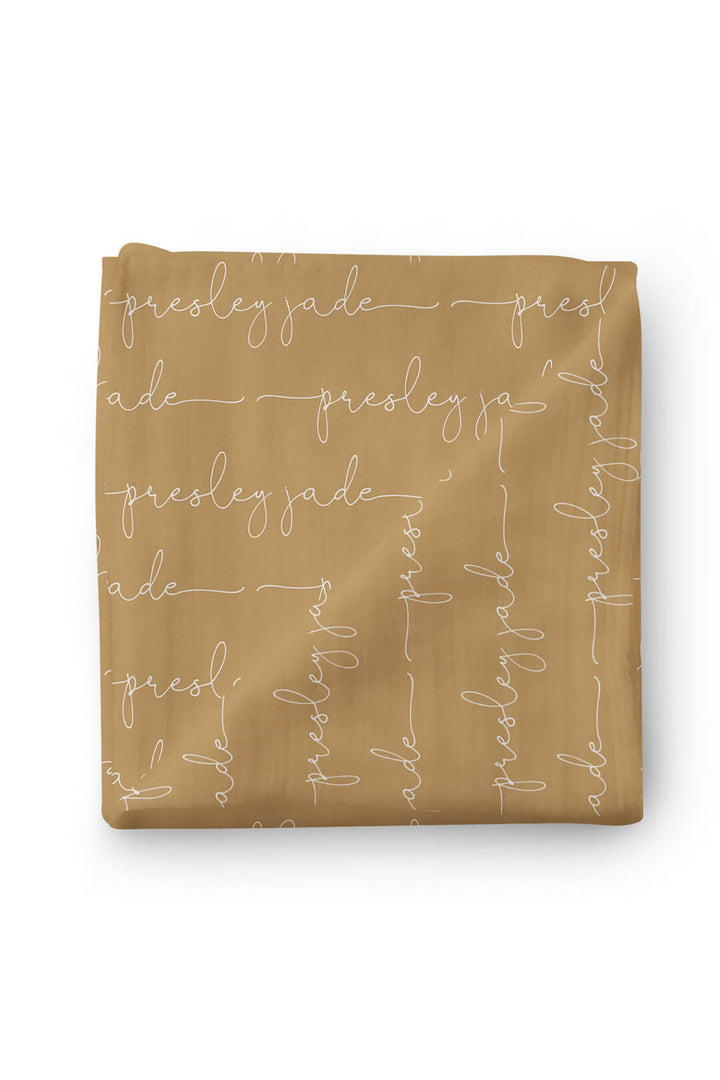 presley jade presl
ade presley ja
presley jade
ade presley ja
presl
presley jade
presley jade
presley jade
ade
ade
ade
pres